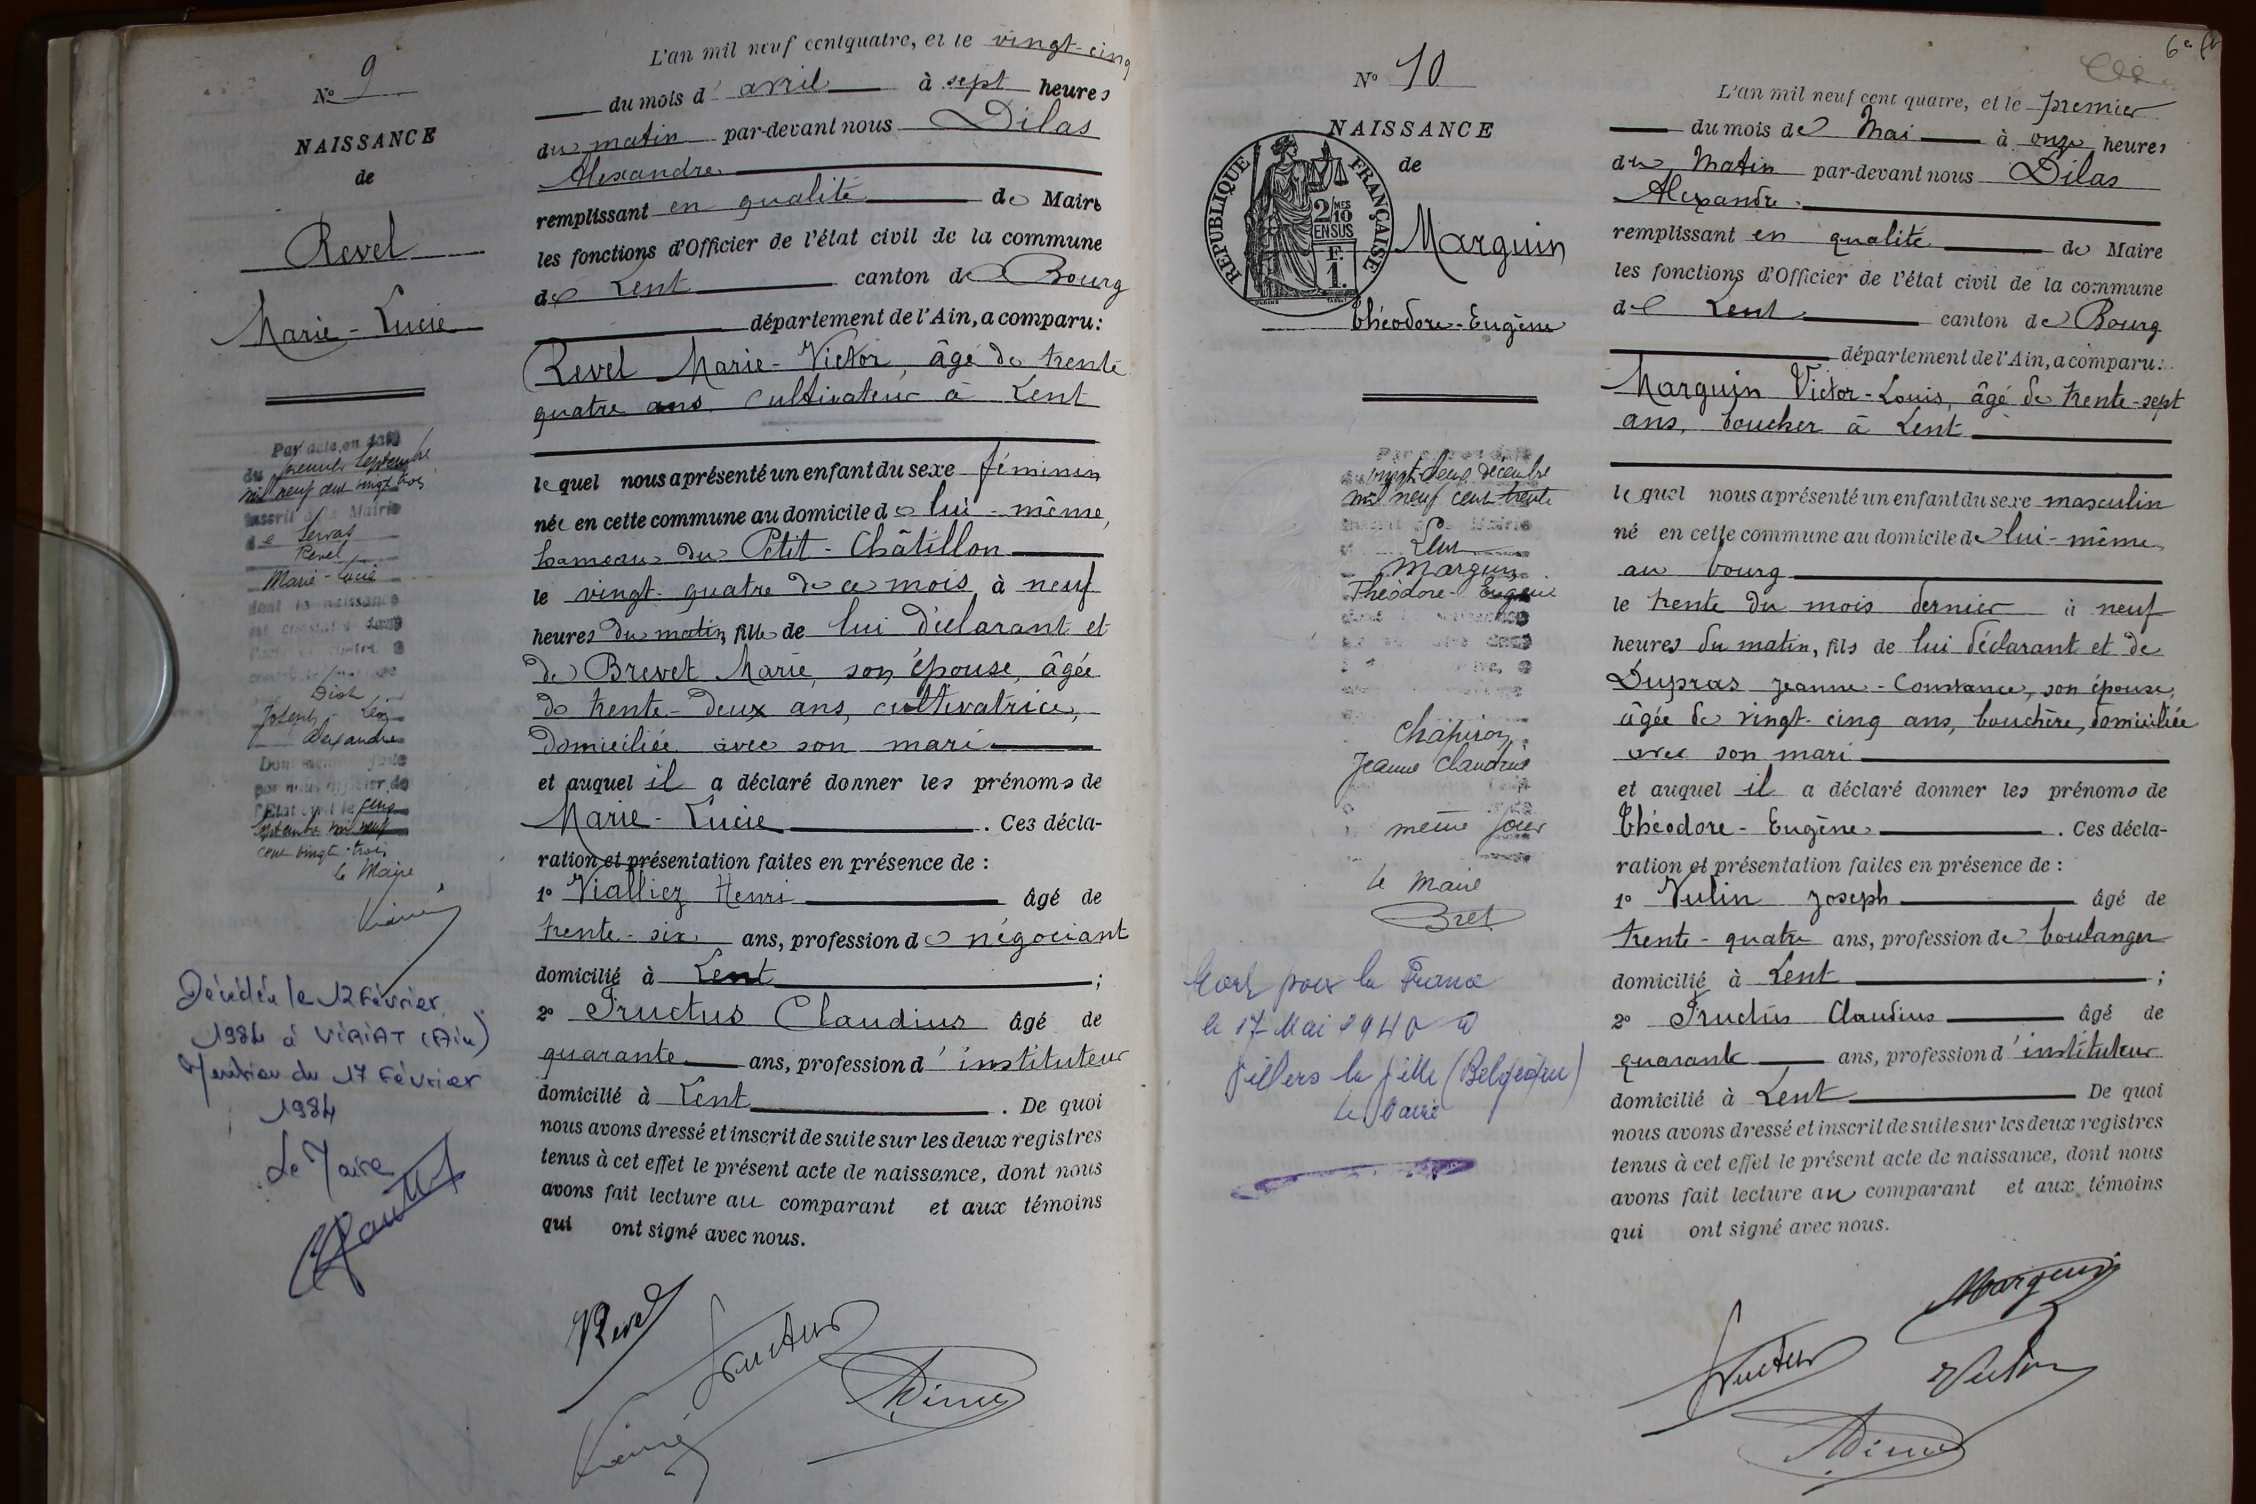 N° 9
NAISSANCE
de
Revel
Marie-Lucie
Par acte en date
du premier Septembre
mil neuf cent vingt trois
inscrit à la Mairie
de Servas
Revel
Marie-Lucie
dont la naissance
est constatée dans
Diot
Joseph - Léon
Alexandre
Dont mention faite
par nous officier de
l'Etat civil le cinq
Septembre mil neuf
cent vingt-trois
Le Maire
Décédée le 12 Février
1984 à VIRIAT (Ain)
Mention du 17 Février
1984
Le Maire
L'an mil neuf cent quatre, et le vingt-cinq
du mois d'avril à sept heures
du matin par-devant nous Dilas
Alexandre
remplissant en qualité de Maire
les fonctions d'Officier de l'état civil de la commune
de Lent canton de Bourg
département de l'Ain, a comparu:
Revel Marie-Victor, âgé de trente
quatre ans, cultivateur à Lent
lequel nous a présenté un enfant du sexe féminin
née en cette commune au domicile de lui-même,
hameau du Petit-Châtillon
le vingt-quatre de ce mois, à neuf
heures du matin, fille de lui déclarant et
de Brevet Marie, son épouse, âgée
de trente-deux ans, cultivatrice,
domiciliée avec son mari
et auquel il a déclaré donner les prénoms de
Marie-Lucie . Ces décla-
ration et présentation faites en présence de :
1° Vialliez Henri âgé de
trente-six ans, profession de négociant
domicilié à Lent ;
2° Fructus Claudius âgé de
quarante ans, profession d'instituteur
domicilié à Lent . De quoi
nous avons dressé et inscrit de suite sur les deux registres
tenus à cet effet le présent acte de naissance, dont nous
avons fait lecture au comparant et aux témoins
qui ont signé avec nous.
Revel
Fructus
N° 10
NAISSANCE
de
RÉPUBLIQUE FRANÇAISE
2/10 MES
EN SUS
F.
1.
Marguin
Théodore-Eugène
vingt-deux décembre
mil neuf cent trente
Lent
Marguin
Théodore-Eugène
Chapiron
Jeanne Claudine
même jour
Le Maire
Bret
Mort pour la France
le 17 Mai 1940 à
Villers la Ville (Belgique)
Le Maire
6e
L'an mil neuf cent quatre, et le premier
du mois de Mai à onze heures
du Matin par-devant nous Dilas
Alexandre
remplissant en qualité de Maire
les fonctions d'Officier de l'état civil de la commune
de Lent canton de Bourg
département de l'Ain, a comparu:
Marguin Victor-Louis, âgé de trente-sept
ans, boucher à Lent
lequel nous a présenté un enfant du sexe masculin
né en cette commune au domicile de lui-même
au bourg
le trente du mois dernier à neuf
heures du matin, fils de lui déclarant et de
Dupras Jeanne-Constance, son épouse,
âgée de vingt-cinq ans, bouchère, domiciliée
avec son mari
et auquel il a déclaré donner les prénoms de
Théodore-Eugène . Ces décla-
ration et présentation faites en présence de :
1° Vulin Joseph âgé de
trente-quatre ans, profession de boulanger
domicilié à Lent ;
2° Fructus Claudius âgé de
quarante ans, profession d'instituteur
domicilié à Lent De quoi
nous avons dressé et inscrit de suite sur les deux registres
tenus à cet effet le présent acte de naissance, dont nous
avons fait lecture au comparant et aux témoins
qui ont signé avec nous.
Marguin
Fructus
Vulin